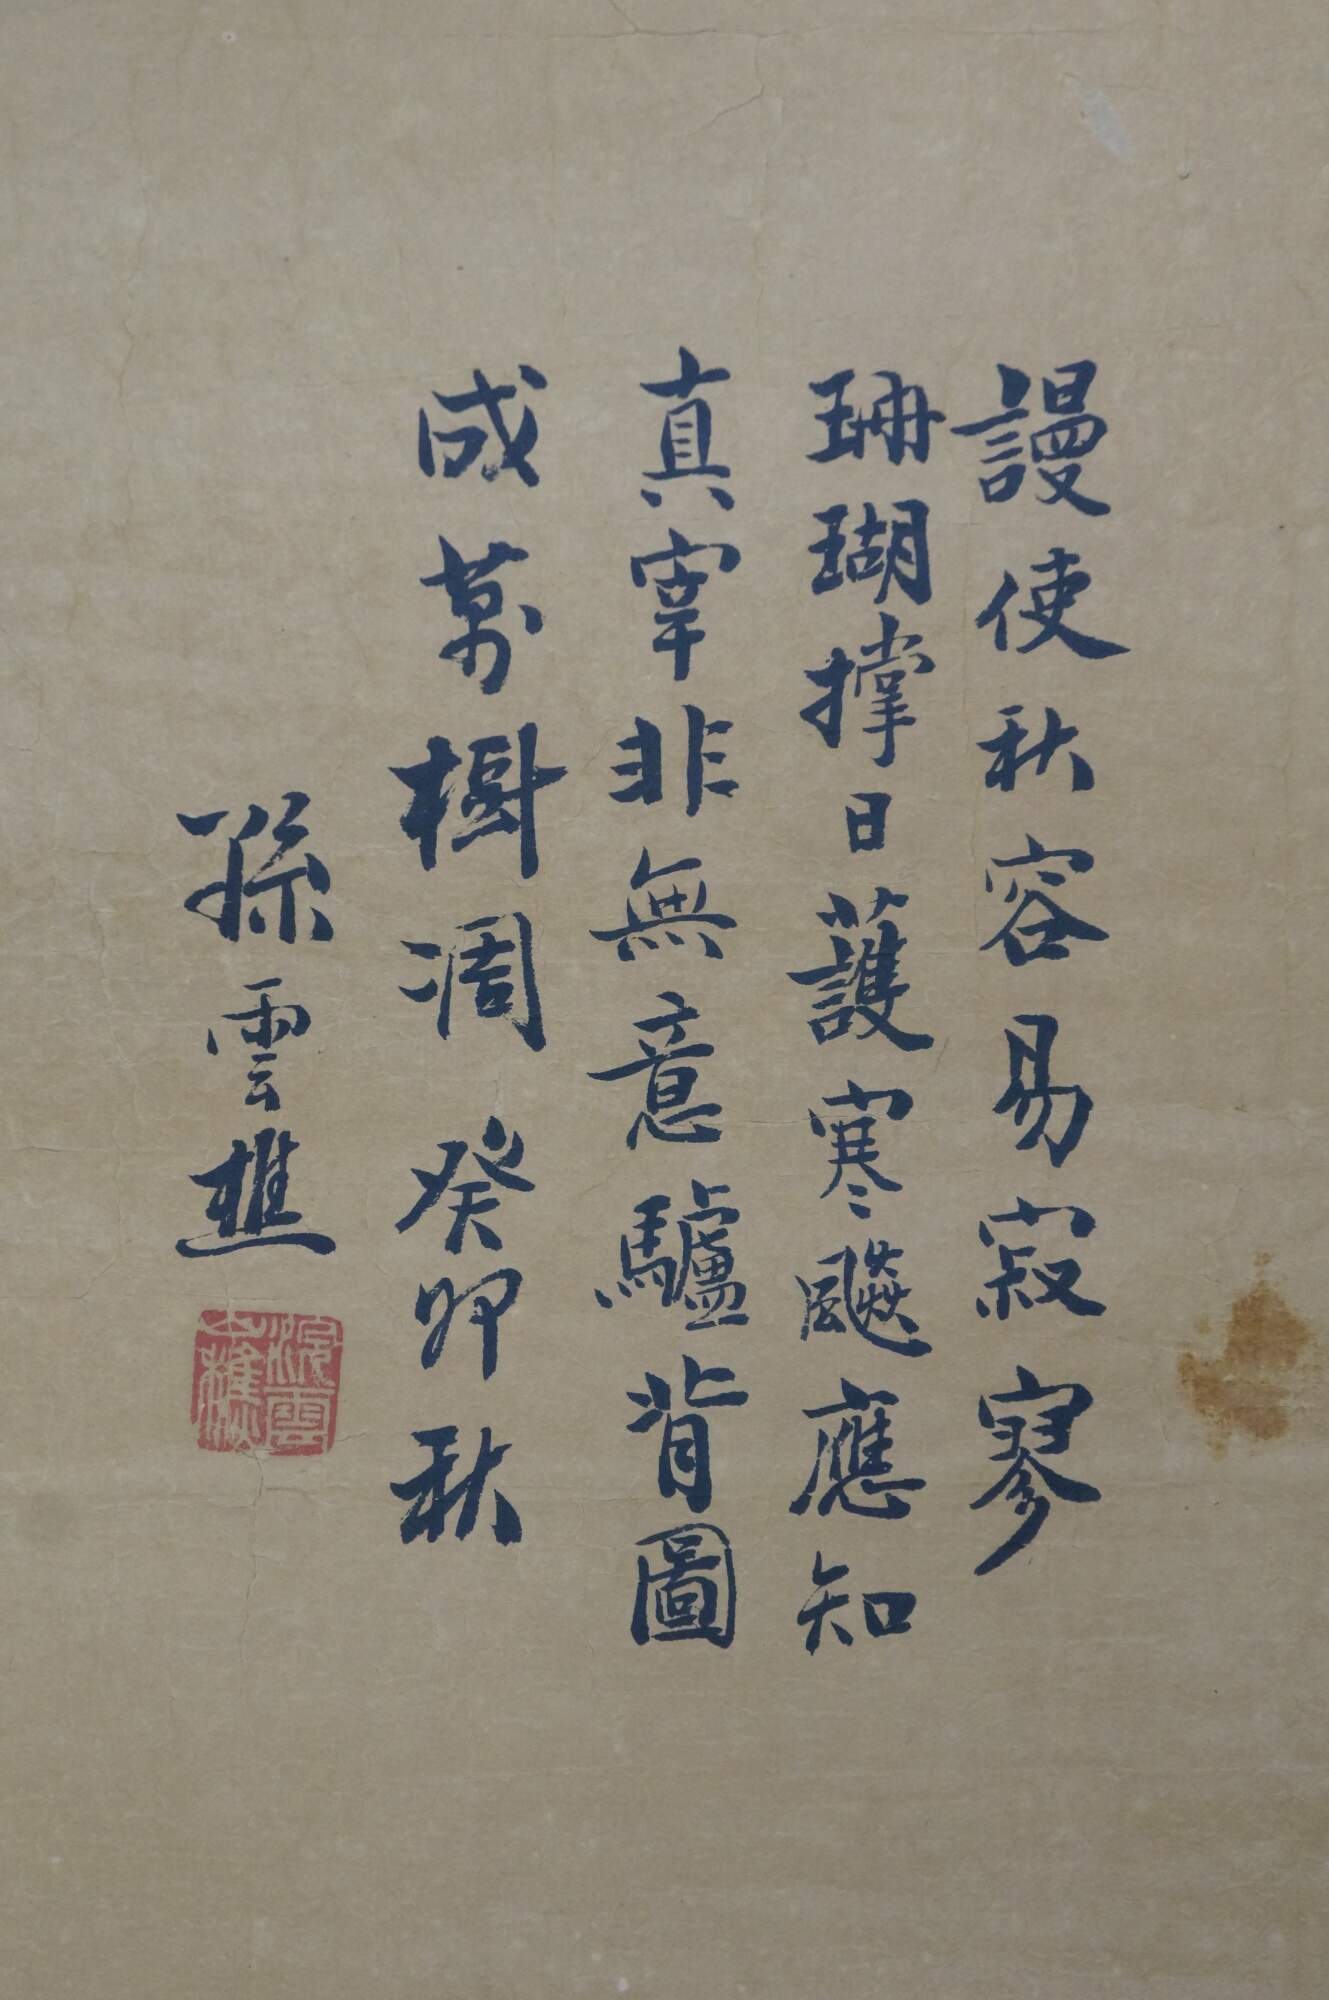 謾使秋容易寂寥
珊瑚撐日護寒飈應知
真宰非無意驢背圖
成萬樹凋癸卯秋
孫雲樵